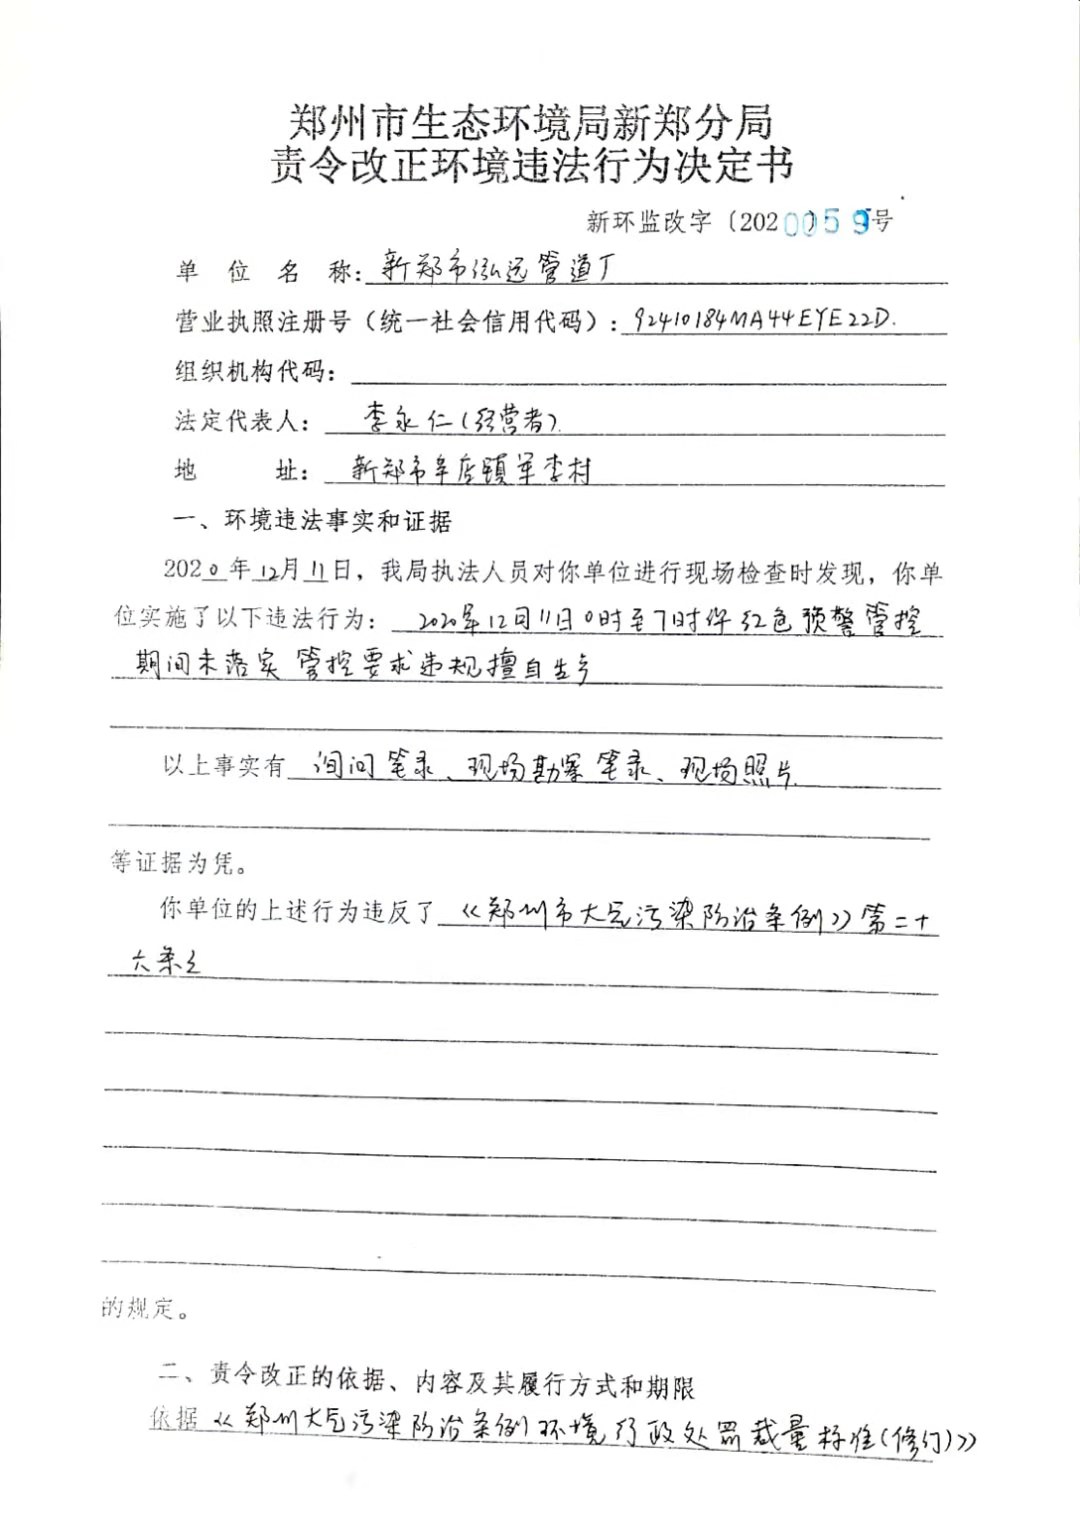 郑州市生态环境局新郑分局
责令改正环境违法行为决定书
新环监改字〔2020〕059号
单位名称：新郑市泓远管道厂
营业执照注册号（统一社会信用代码）：92410184MA44EYE22D.
组织机构代码：
法定代表人：李永仁(经营者).
地址：新郑市辛店镇军李村
一、环境违法事实和证据
2020年12月11日，我局执法人员对你单位进行现场检查时发现，你单
位实施了以下违法行为：2020年12日11日0时至7时许红色预警管控
期间未落实管控要求违规擅自生产
以上事实有询问笔录、现场勘察笔录、现场照片.
等证据为凭。
你单位的上述行为违反了《郑州市大气污染防治条例》第二十
六条之
的规定。
二、责令改正的依据、内容及其履行方式和期限
依据《郑州大气污染防治条例环境行政处罚裁量标准(修订)》